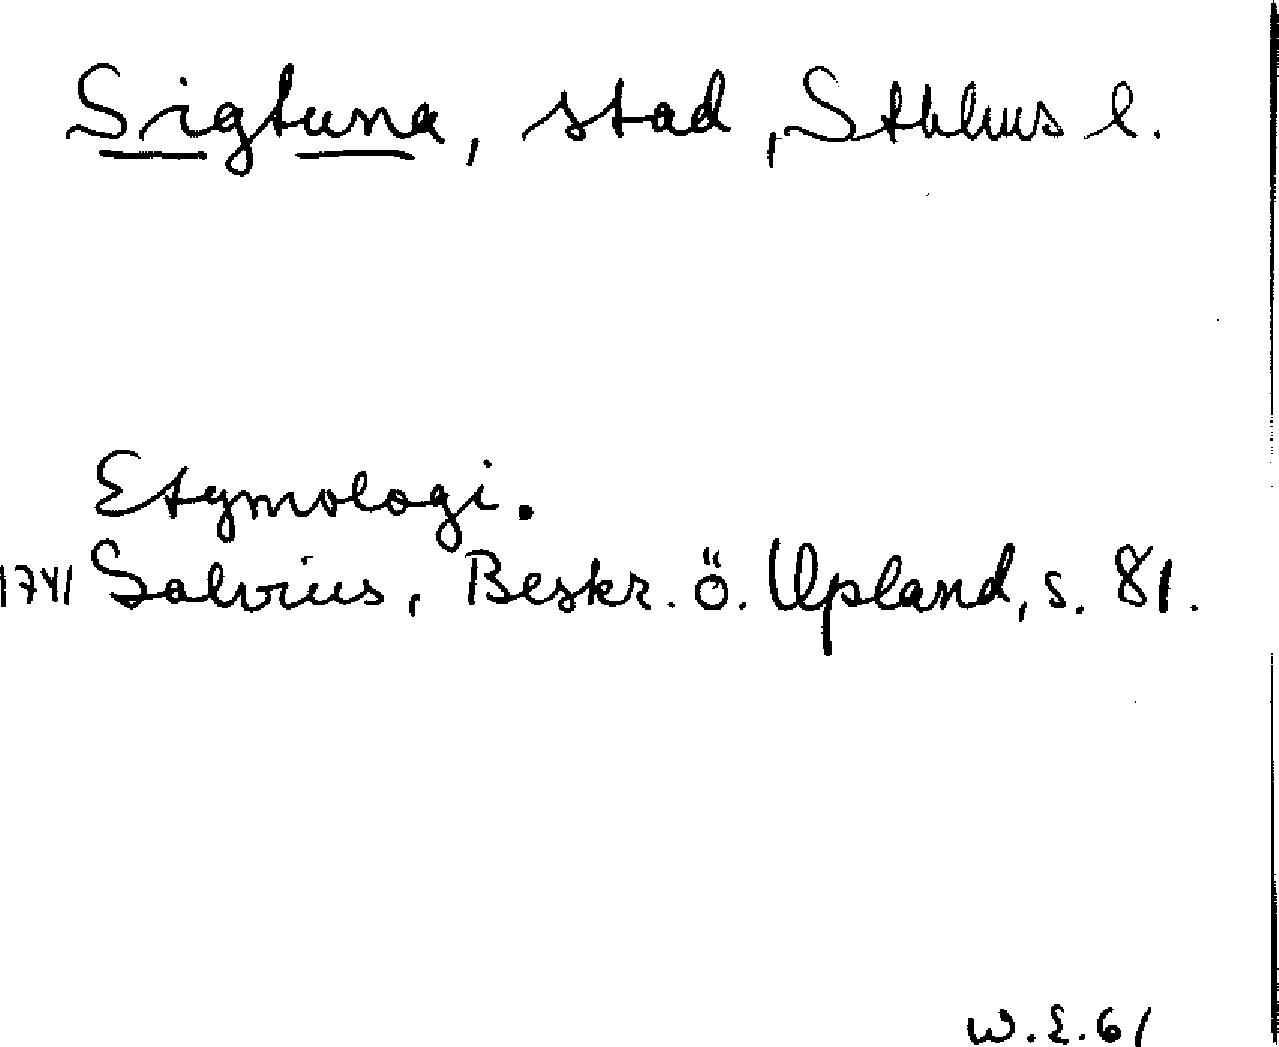 Sigtuna, stad, Sthlms l.
Etymologi.
1741 Salvius, Beskr. ö. Upland, s. 81.
W.E.61